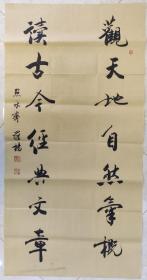 觀天地自然氣概
讀古今經典文章